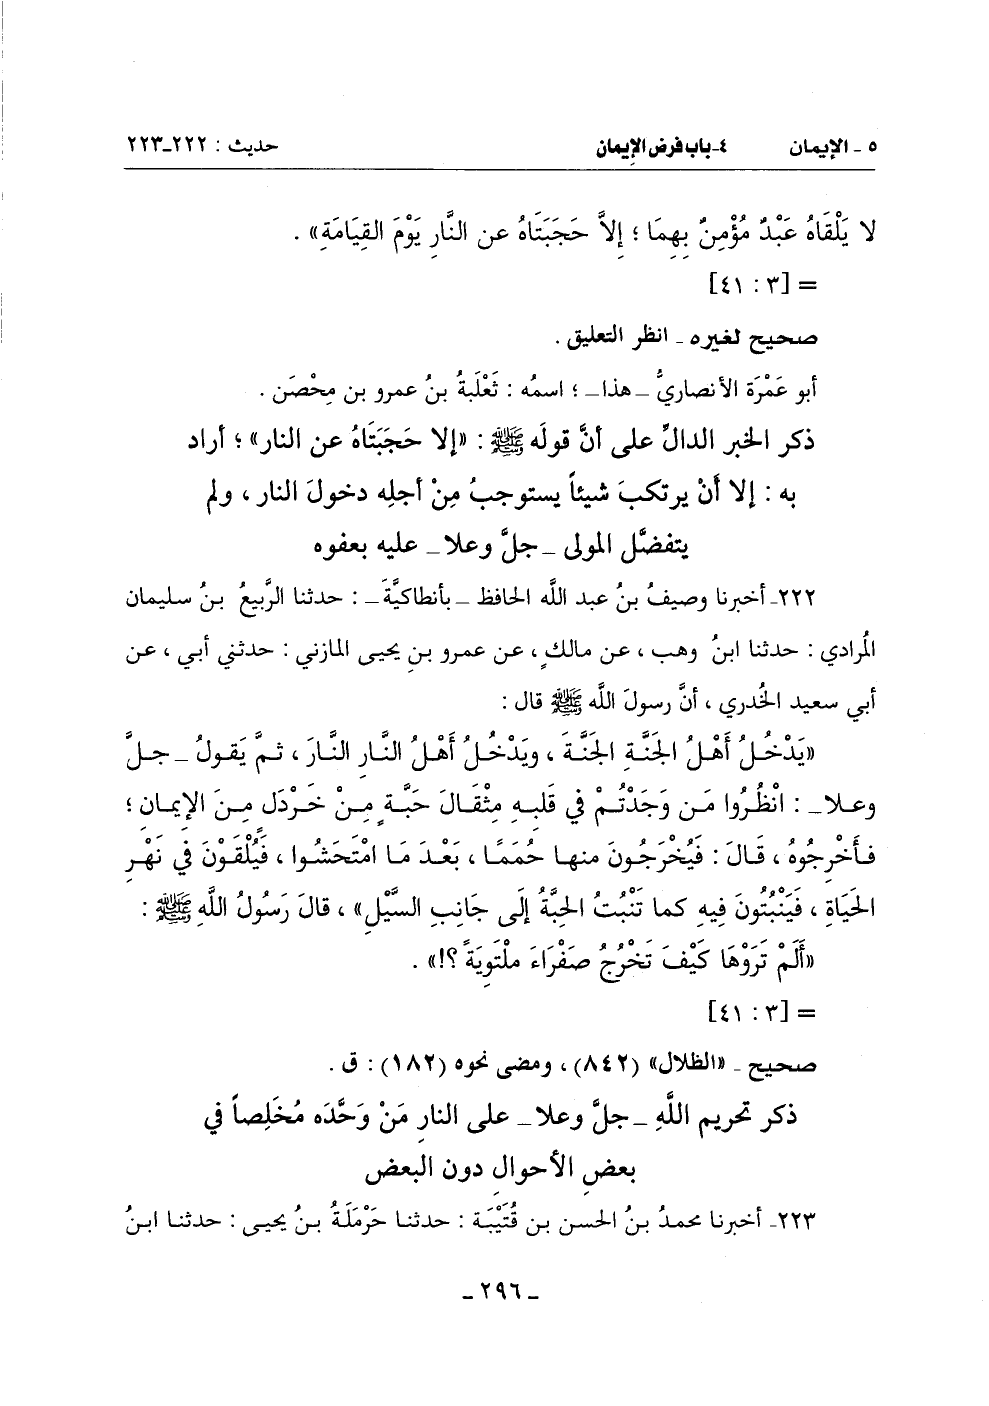 ٥ ـ الإيمان ٤ـ باب فرض الإيمان حديث : ٢٢٢ـ٢٢٣
لا يَلْقَاهُ عَبْدٌ مُؤْمِنٌ بِهِمَا ؛ إِلاَّ حَجَبَتَاهُ عن النَّارِ يَوْمَ القِيَامَةِ» .
= [٣ : ٤١]
صحيح لغيره ـ انظر التعليق .
أبو عَمْرَة الأنصاريُّ ـ هذا ـ ؛ اسمُه : ثَعْلَبَةُ بنُ عمرو بن مِحْصَن .
ذكر الخبر الدالِّ على أنَّ قولَه ﷺ : «إلا حَجَبَتَاهُ عن النار» ؛ أراد
به : إلا أَنْ يرتكبَ شيئاً يستوجبُ مِنْ أجلِه دخولَ النار ، ولم
يتفضَّل المولى ـ جلَّ وعلا ـ عليه بعفوه
٢٢٢ـ أخبرنا وصيفُ بنُ عبد اللَّه الحافظ ـ بأنطاكيَّةَ ـ : حدثنا الرَّبيعُ بنُ سليمان
المُرادي : حدثنا ابنُ وهب ، عن مالكٍ ، عن عمرو بنِ يحيى المازني : حدثني أبي ، عن
أبي سعيد الخُدري ، أنَّ رسولَ اللَّه ﷺ قال :
«يَدْخُلُ أَهْلُ الجَنَّةِ الجَنَّةَ ، ويَدْخُلُ أَهْلُ النَّارِ النَّارَ ، ثمَّ يَقولُ ـ جلَّ
وعلا ـ : انْظُرُوا مَن وَجَدْتُمْ في قَلبِهِ مِثْقَالَ حَبَّةٍ مِنْ خَرْدَلٍ مِنَ الإيمان ؛
فأَخْرِجُوهُ ، قَالَ : فَيُخْرَجُونَ منها حُمَمًا ، بَعْدَ مَا امْتَحَشُوا ، فَيُلْقَوْنَ في نَهْرِ
الحَيَاةِ ، فَيَنْبُتُونَ فِيهِ كما تَنْبُتُ الحِبَّةُ إلَى جَانِبِ السَّيْلِ» ، قالَ رَسُولُ اللَّهِ ﷺ :
«أَلَمْ تَرَوْهَا كَيْفَ تَخْرُجُ صَفْرَاءَ ملْتَوِيَةً ؟!» .
= [٣ : ٤١]
صحيح ـ «الظلال» (٨٤٢) ، ومضى نحوه (١٨٢) : ق .
ذكر تحريم اللَّهِ ـ جلَّ وعلا ـ على النارِ مَنْ وَحَّدَه مُخَلِصاً في
بعضِ الأحوال دون البعض
٢٢٣ـ أخبرنا محمدُ بنُ الحسن بن قُتَيْبَة : حدثنا حَرْمَلَةُ بنُ يحيى : حدثنا ابنُ
ـ ٢٩٦ ـ